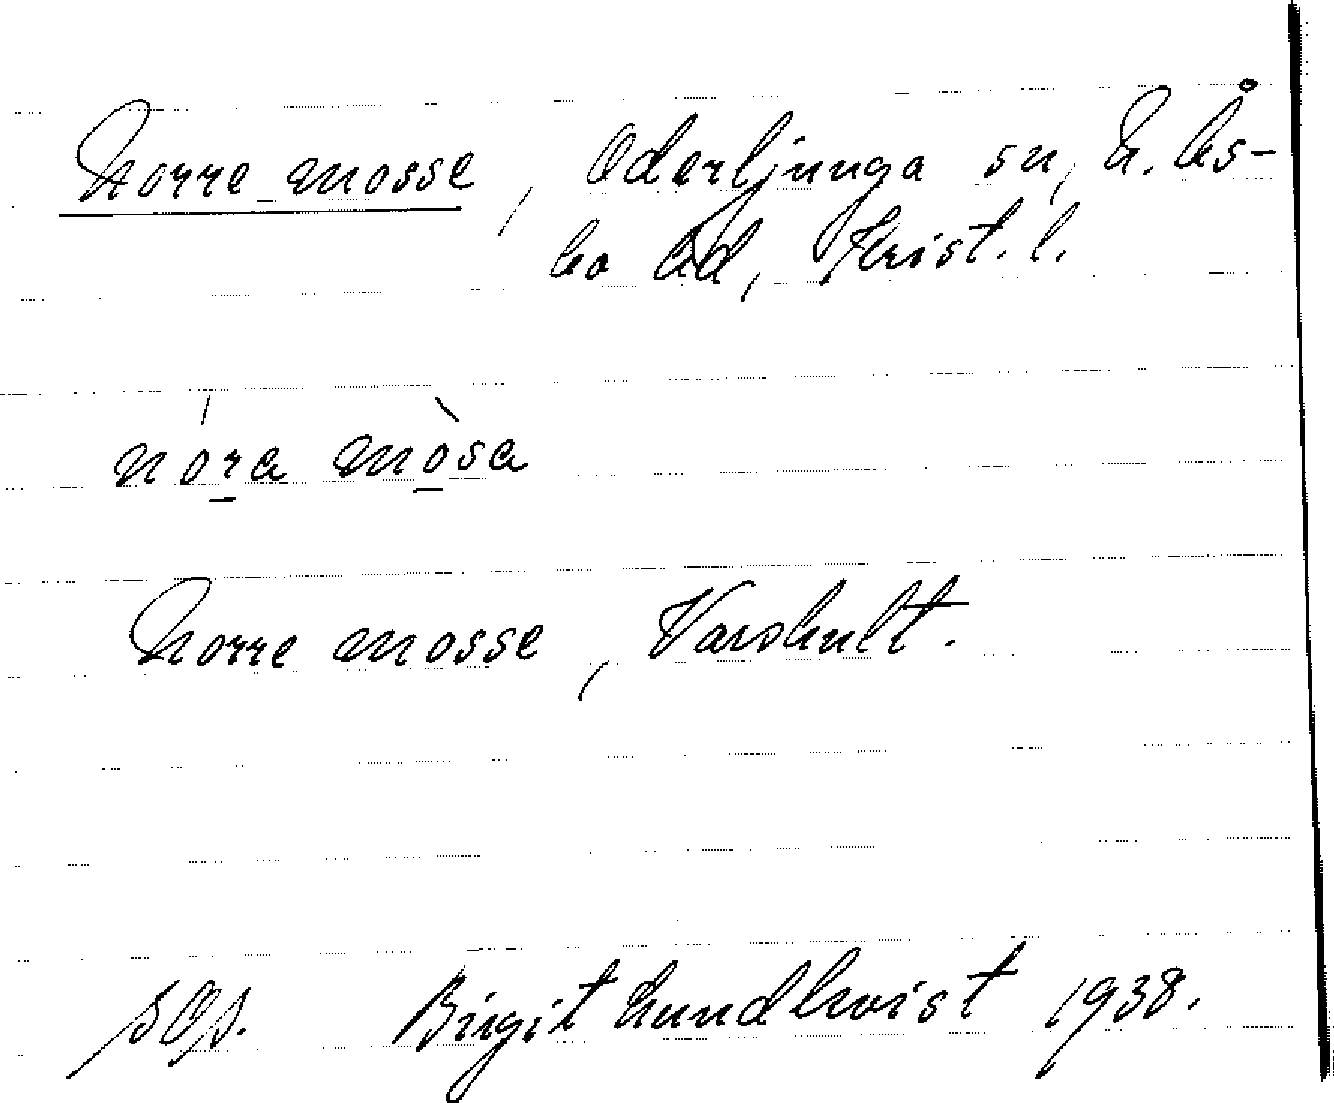 Norre mosse, Oderljunga sn, N. Ås-
bo hd, Krist. l.
nóra mòsa
Norre mosse, Varshult.
Birgit Lundkvist 1938.